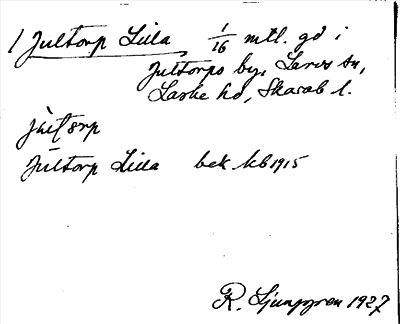 1 Jultorp Lilla 1/16 mtl. gd i
Jultorps by, Larvs sn,
Laske hd, Skarab l.
jùl̄tørp
Jultorp Lilla bek kb 1915
R. Ljunggren 1927